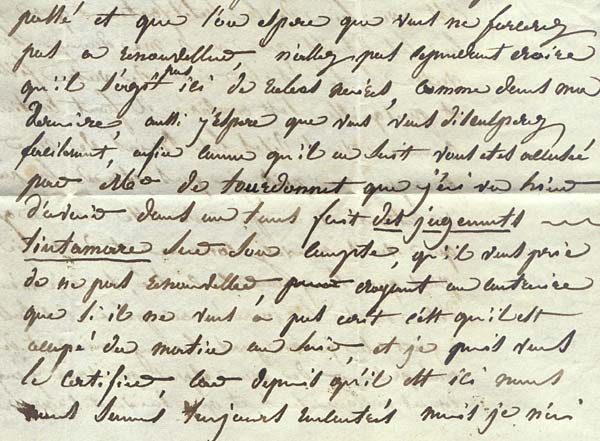 passé et que l'on espere que vous ne forcerez
pas a renouveller, n'allez pas cependant croire
qu'il s'agit pas ici de comme dans ma
derniere, aussi j'espere que vous vous disculperez
facilement, enfin comme qu'il en soit vous etes accusé
par Mde de tourdonnet que j'ai vu hier
d'avoir dans un tems fait des jugements
tintamare sur son compte, qu'il vous prie
de ne pas renouveller croyant au contraire
que si il ne vous a pas ecrit c'est qu'il est
occupé du matin au soir, et je puis vous
le certifier car depuis qu'il est ici nous
nous sommes toujours mais je n'ai